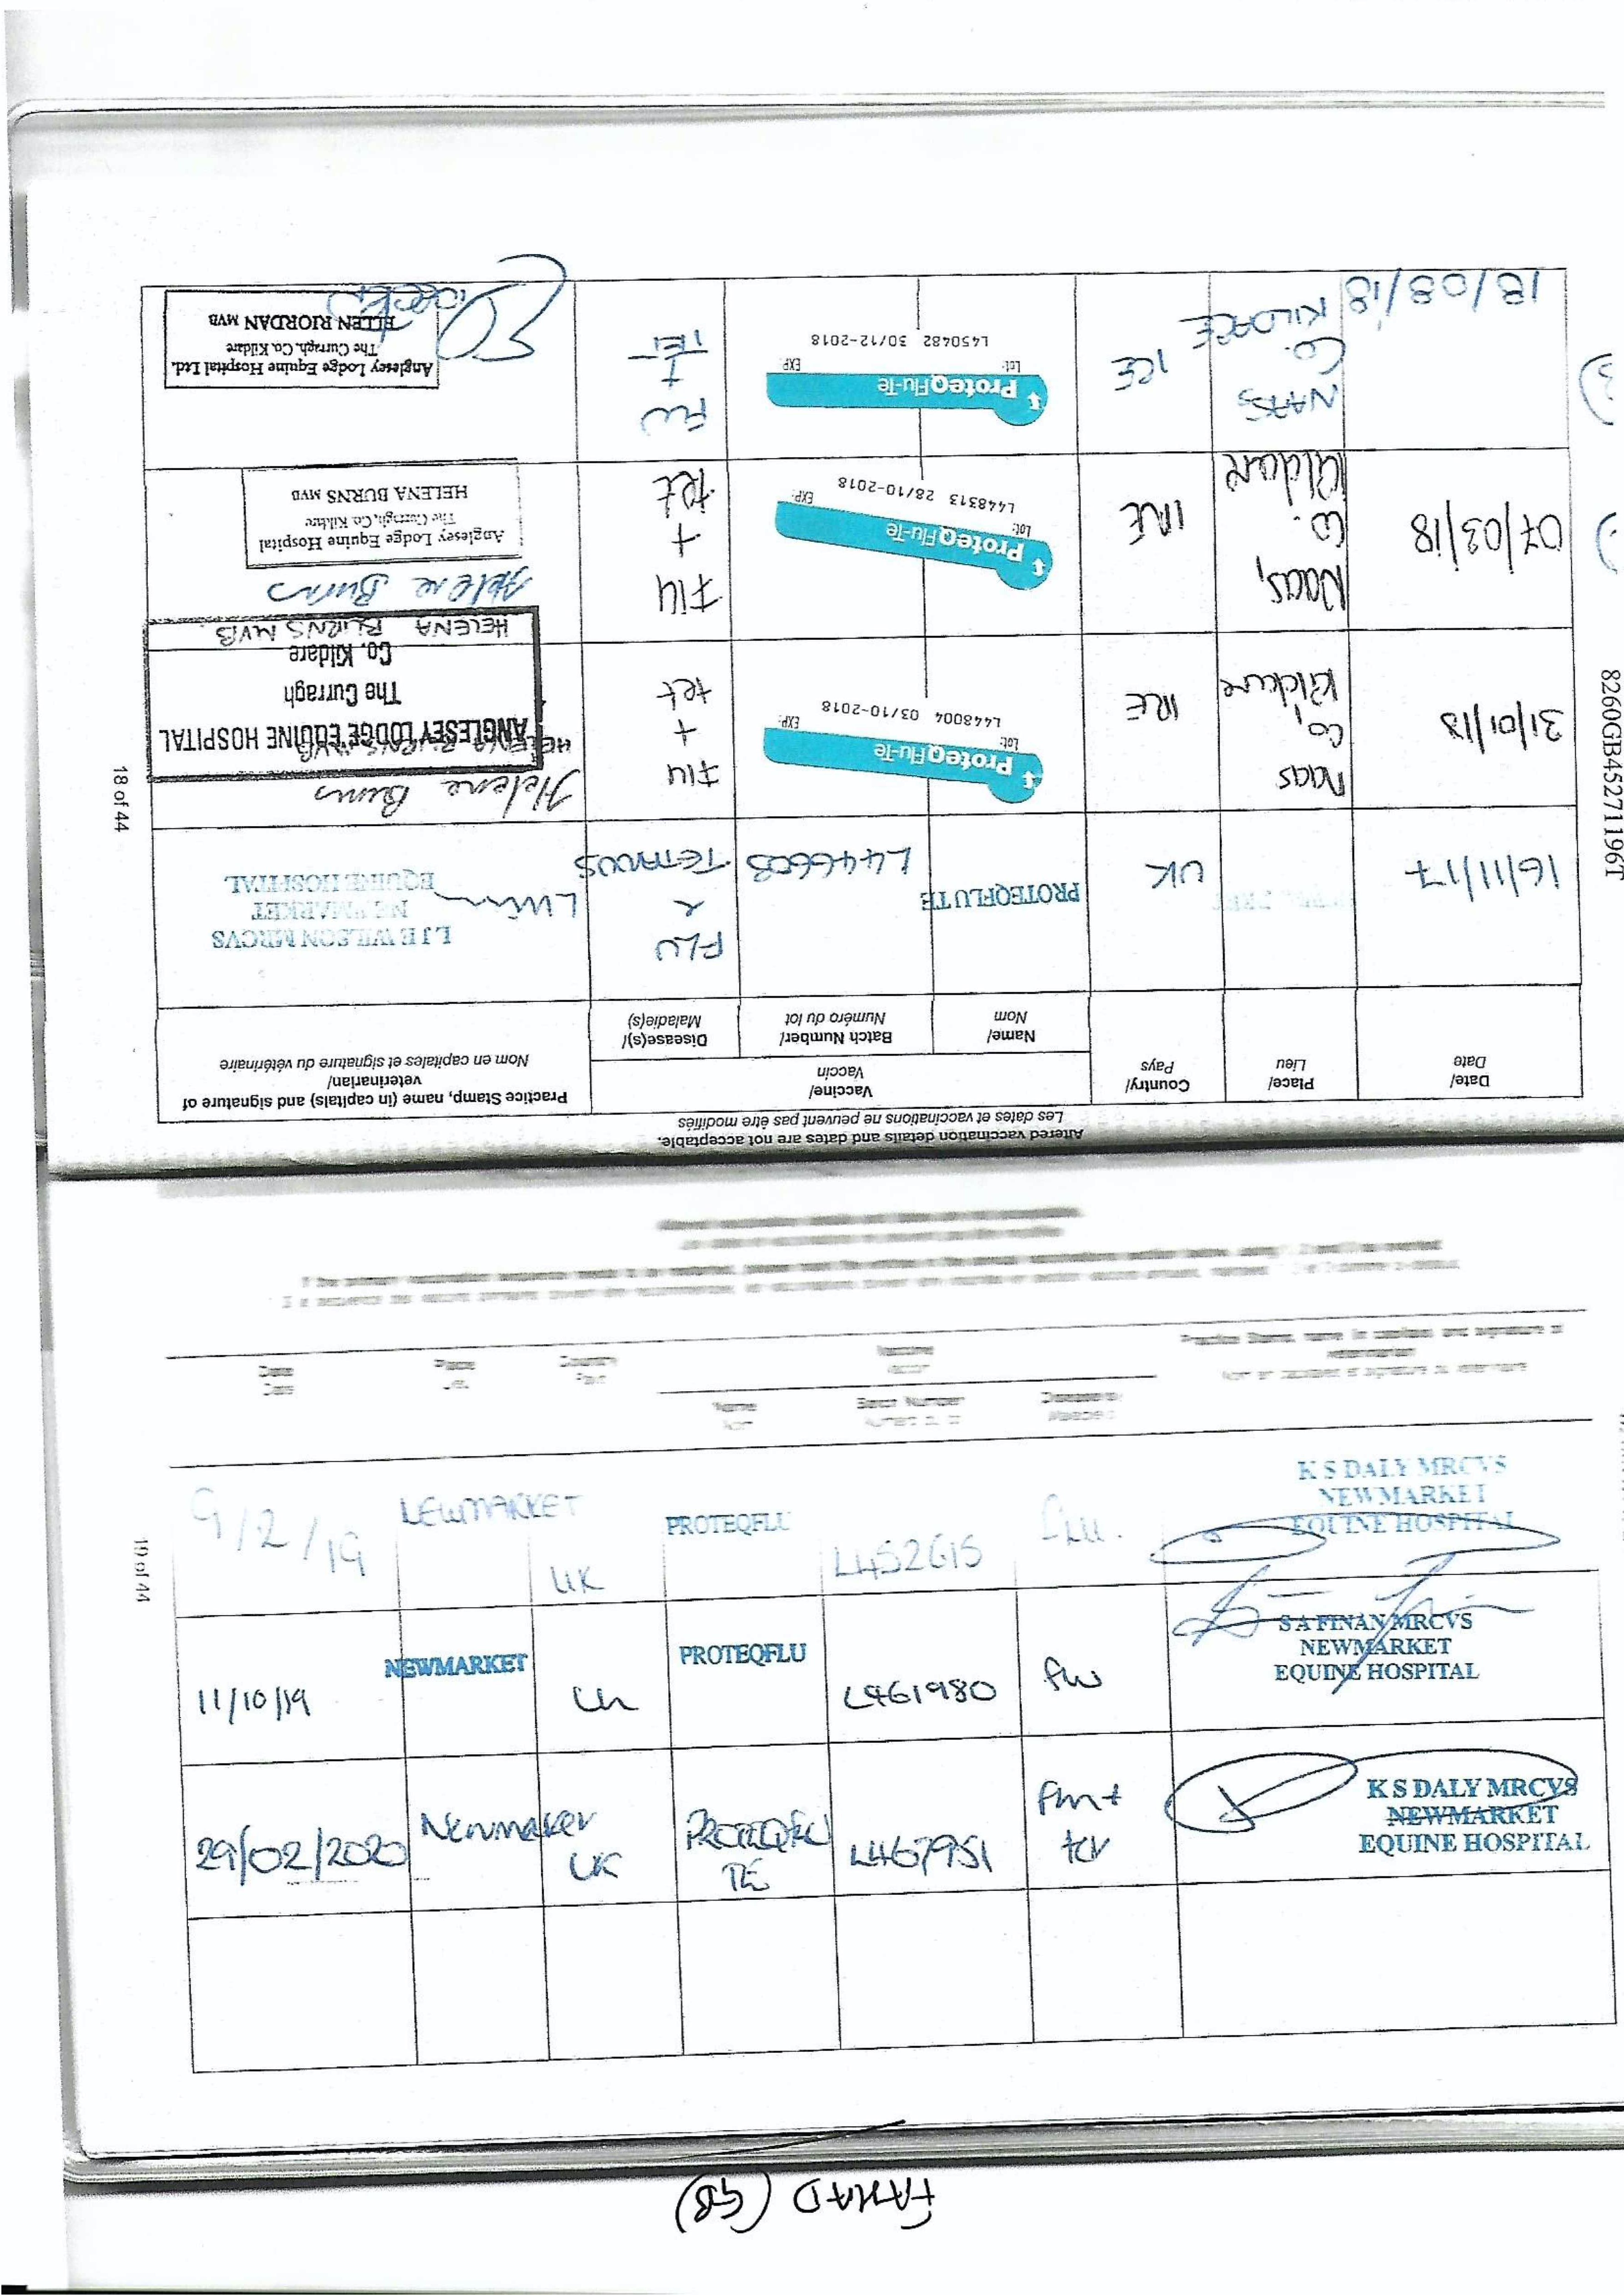 Altered vaccination details and dates are not acceptable.
Les dates et vaccinations ne peuvent pas être modifiés
Date/
Date
Place/
Lieu
Country/
Pays
Vaccine/
Vaccin
Name/
Nom
Batch Number/
Numéro du lot
Disease(s)/
Maladie(s)
Practice Stamp, name (in capitals) and signature of
veterinarian/
Nom en capitales et signature du vétérinaire
16/11/17
UK
PROTEQFLUTE
L446603
FLU
&
TETANUS
L J E WILSON MRCVS
NEWMARKET
EQUINE HOSPITAL
31/01/18
Naas
Co,
Kildare
IRE
ProteqFlu-Te
Lot: EXP:
L448004 03/10-2018
Flu
+
tet
Helena Burns
HELENA BURNS MVB
ANGLESEY LODGE EQUINE HOSPITAL
The Curragh
Co. Kildare
07/03/18
Naas,
Co.
Kildare
IRE
ProteqFlu-Te
Lot: EXP:
L448313 28/10-2018
Flu
+
tet
HELENA BURNS MVB
Helena Burns
Anglesey Lodge Equine Hospital
The Curragh, Co. Kildare
HELENA BURNS MVB
3)
18/08/18
NAAS
Co.
KILDARE
IRE
ProteqFlu-Te
Lot: EXP:
L450482 30/12-2018
FLU
+
TET
Anglesey Lodge Equine Hospital Ltd.
The Curragh, Co. Kildare
ELLEN RIORDAN MVB
18 of 44
8260GB45271196T
Date
Date
Place
Country
Name
Batch Number
9/2/19
NEWMARKET
UK
PROTEQFLU
L452615
Flu.
K S DALY MRCVS
NEWMARKET
EQUINE HOSPITAL
11/10/19
NEWMARKET
UK
PROTEQFLU
L461980
flu
S A FINAN MRCVS
NEWMARKET
EQUINE HOSPITAL
29/02/2020
Newmarket
UK
PROTEQFLU
TE
L467951
K S DALY MRCVS
NEWMARKET
EQUINE HOSPITAL
19 of 44
FAMAD (GB)